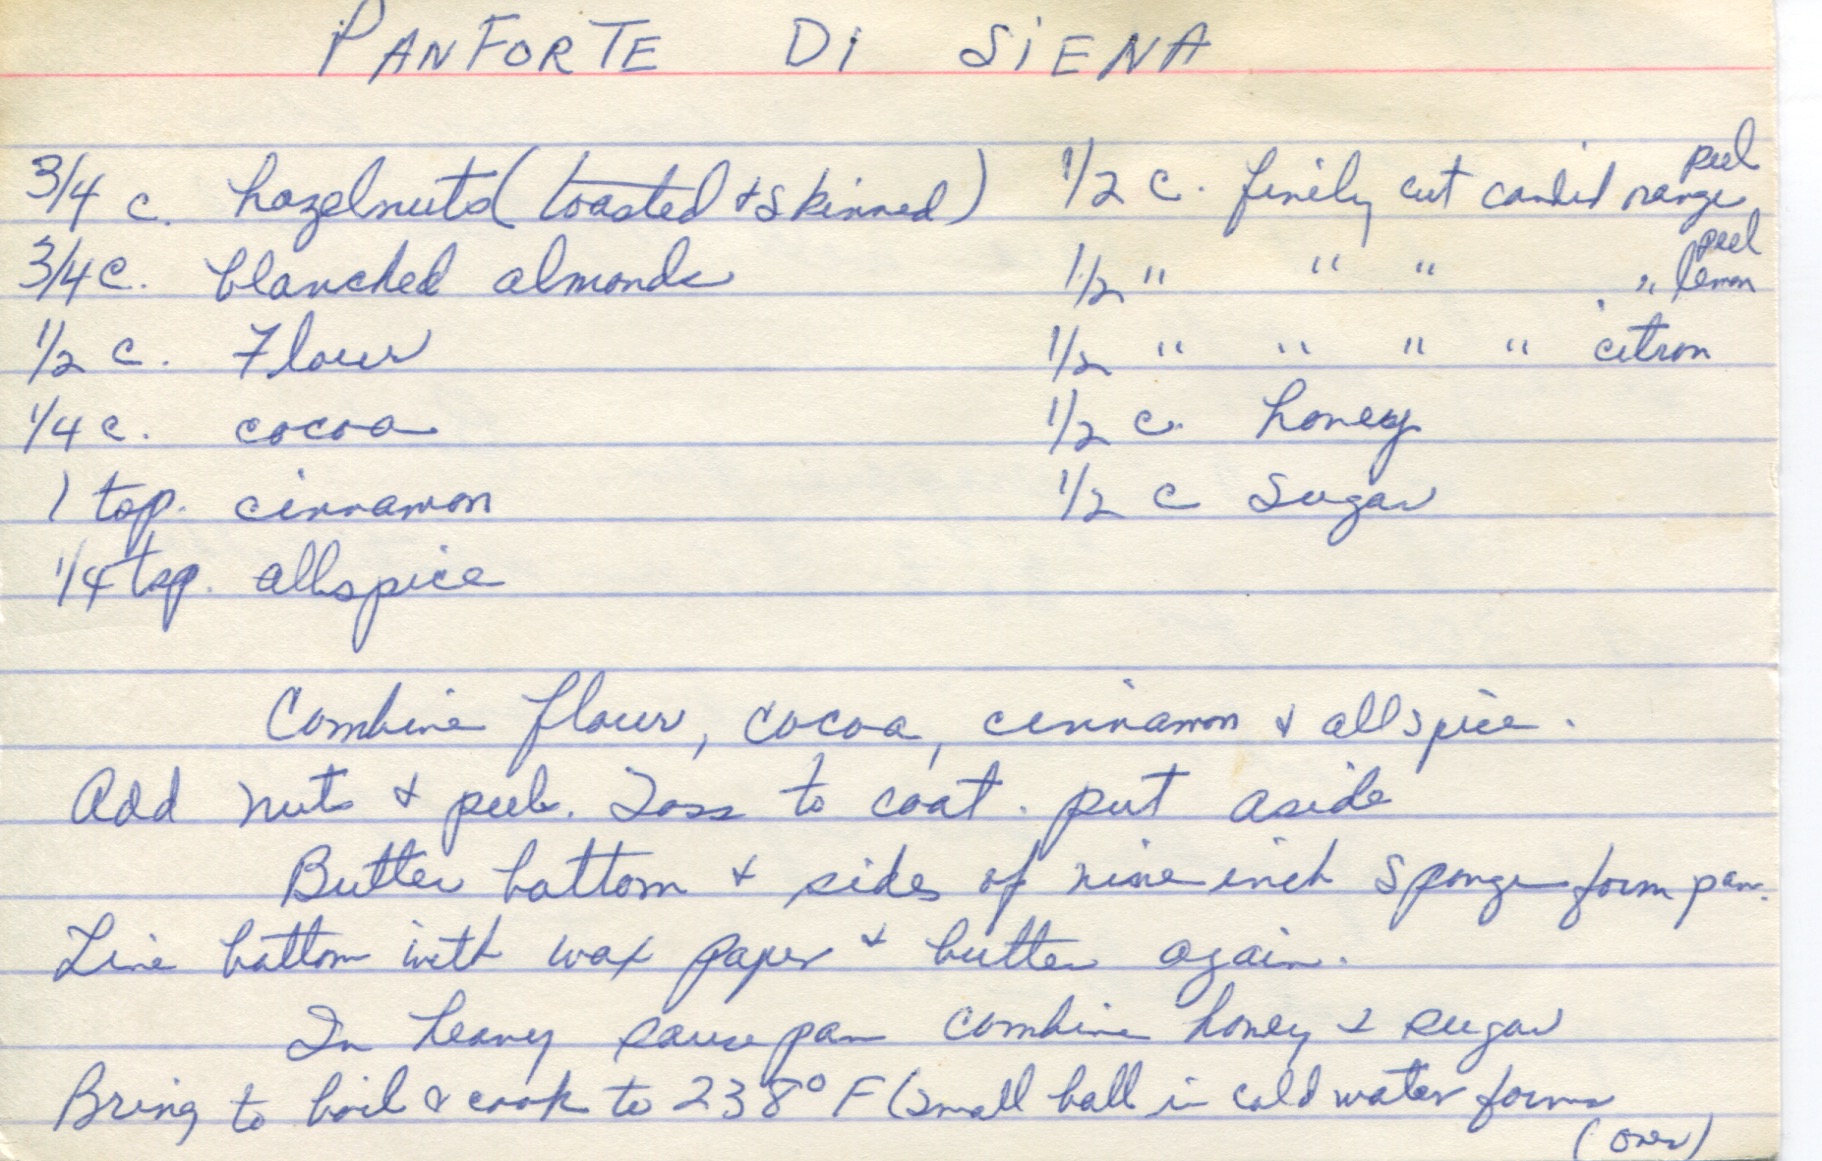 PANFORTE Di SiENA
3/4 c. hazelnuts (toasted + skinned)
3/4 c. blanched almonds
1/2 c. Flour
1/4 c. cocoa
1 tsp. cinnamon
1/4 tsp. allspice
1/2 c. finely cut candied orange peel
1/2 " " " " lemon peel
1/2 " " " " citron
1/2 c. honey
1/2 c Sugar
Combine flour, cocoa, cinnamon + allspice.
Add nuts + peels. Toss to coat. put aside
Butter bottom + sides of nine inch Sponge form pan.
Line bottom with wax paper + butter again.
In heavy sauce pan combine honey + sugar
Bring to boil + cook to 238° F (small ball in cold water forms
(over)